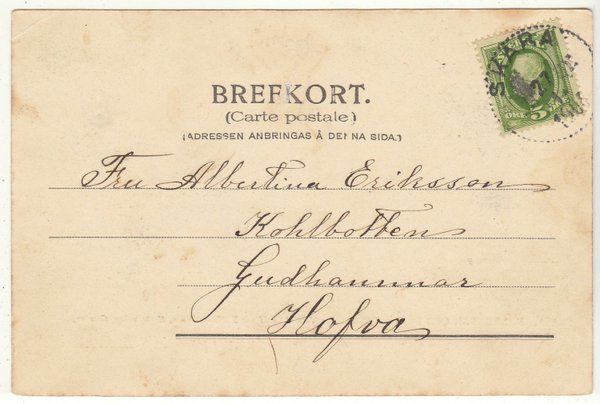 BREFKORT.
(Carte postale)
(ADRESSEN ANBRINGAS Å DENNA SIDA.)
SKARA
27
ÖRE 5 ÖRE
Fru Albertina Eriksson
Kohlbotten
Gudhammar
Hofva